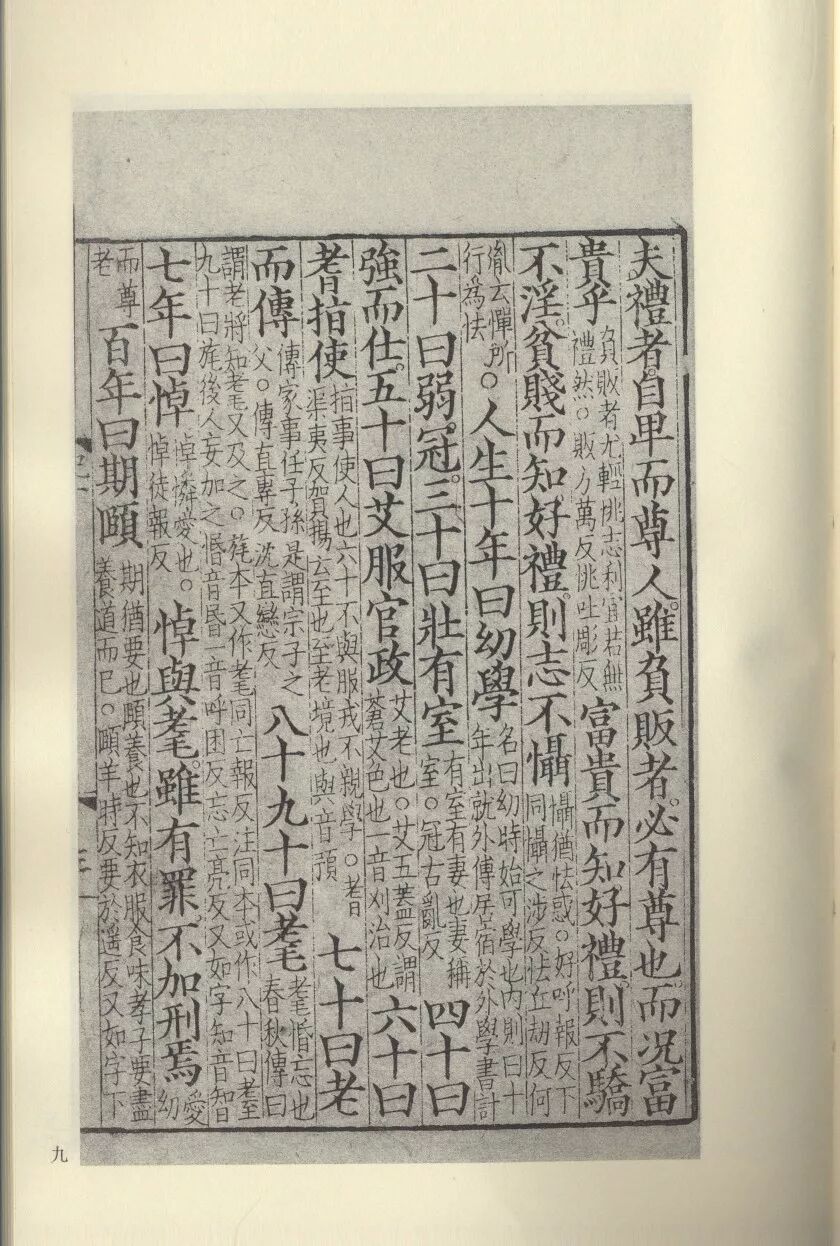 夫禮者。自卑而尊人。雖負販者。必有尊也。而况富
貴乎
負販者尤輕恌志利宜若無
禮然。販方萬反恌吐彫反
富貴而知好禮。則不驕
不淫。貧賤而知好禮。則志不懾
懾猶怯惑。好呼報反下
同懾之涉反怯丘劫反何
胤云憚所
行爲怯
。人生十年曰幼學
名曰幼時始可學也内則曰十
年出就外傅居宿於外學書計
二十曰弱。冠。三十曰壯有室
有室有妻也妻稱
室。冠古亂反
四十曰
強而仕。五十曰艾服官政
艾老也。艾五蓋反謂
蒼艾色也一音刈治也
六十曰
耆指使
指事使人也六十不與服戎不親學。耆
渠夷反賀瑒云至也至老境也與音預
七十曰老
而傳
傳家事任子孫是謂宗子之
父。傳直專反沈直戀反
八十九十曰耄
耄惛忘也
春秋傳曰
謂老將知耄又及之。旄本又作耄同亡報反注同本或作八十曰耋
九十曰旄後人妄加之惛音昏一音呼困反忘亡亮反又如字知音智
七年曰悼
悼憐愛也。
悼徒報反
悼與耄。雖有罪。不加刑焉
愛
幼
而尊
老
百年曰期頤
期猶要也頤養也不知衣服食味孝子要盡
養道而已。頤羊時反要於遥反又如字下
九